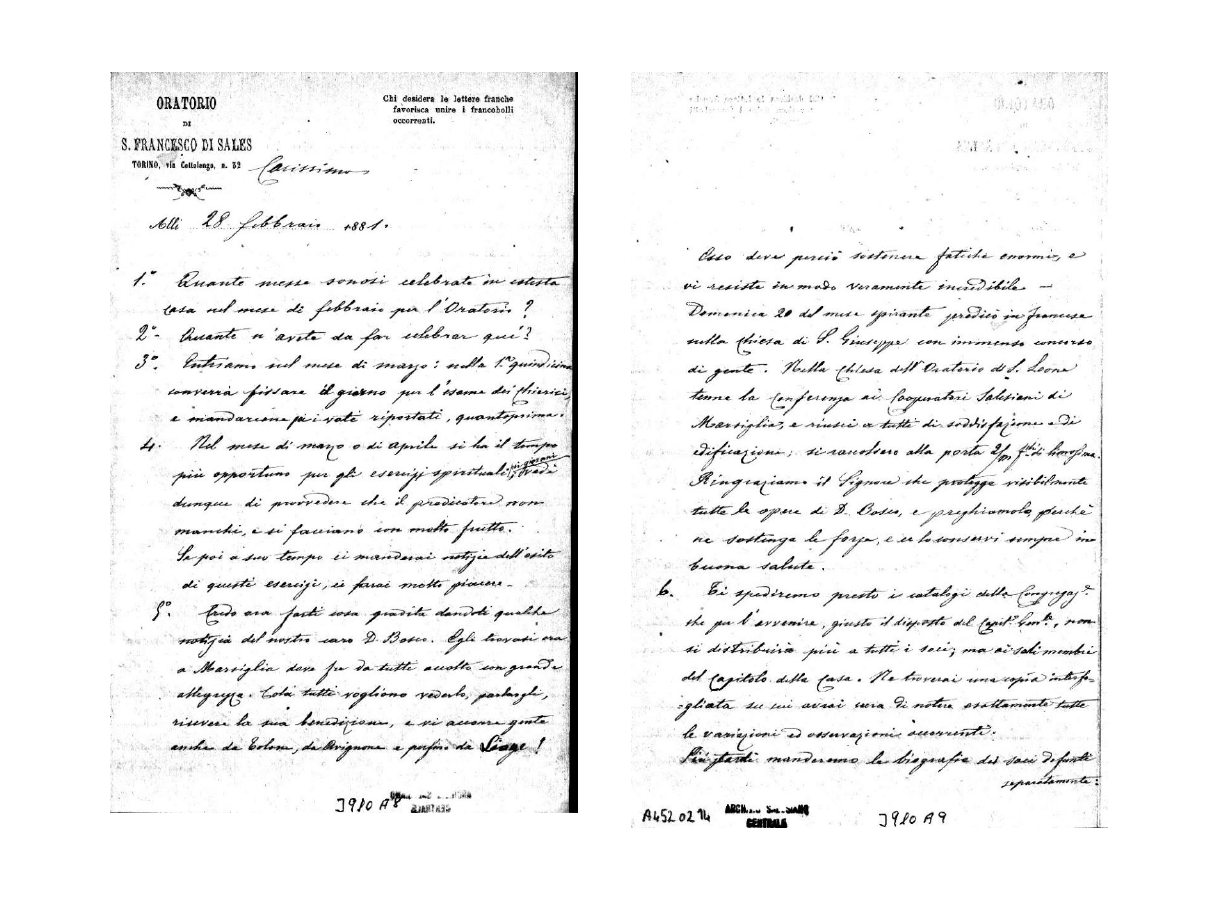 ORATORIO
DI
S. FRANCESCO DI SALES
TORINO, via Cottolengo, n. 32
Chi desidera le lettere franche
favorisca unire i francobolli
occorrenti.
Carissimo
Alli 28 febbraio 1881.
1.° Quante messe sonosi celebrate in cotesta
casa nel mese di febbraio per l'Oratorio?
2°- Quante n'avete da far celebrar qui?
3°. Entriamo nel mese di marzo: nella 1.ª quindicina
converrà fissare il giorno per l'esame dei Chierici,
e mandarcene poi i voti riportati, quantoprima.
4. Nel mese di marzo o di aprile si ha il tempo
più opportuno per gli esercizi spirituali dei giovani; vedi
dunque di provvedere che il predicatore non
manchi, e si facciano con molto frutto.
Se poi a suo tempo ci manderai notizie dell'esito
di questi esercizi, ci farai molto piacere.
5°. Credo ora farti cosa gradita dandoti qualche
notizia del nostro caro D. Bosco. Egli trovasi ora
a Marsiglia dove fu da tutti accolto con grande
allegrezza. Colà tutti vogliono vederlo, parlargli,
ricevere la sua benedizione, e vi accorre gente
anche da Tolone, da Avignone e perfino da Liege!
J910 A8
Esso deve perciò sostenere fatiche enormi, e
vi resiste in modo veramente incredibile —
Domenica 20 del mese spirante predicò in francese
nella Chiesa di S. Giuseppe con immenso concorso
di gente. Nella Chiesa dell'Oratorio di S. Leone
tenne la Conferenza ai Cooperatori Salesiani di
Marsiglia, e riuscì a tutti di soddisfazione e di
edificazione; si raccolsero alla porta 2/m f.chi di limosina.
Ringraziamo il Signore che protegge visibilmente
tutte le opere di D. Bosco, e preghiamolo, perchè
ne sostenga le forze, e ce lo conservi sempre in
buona salute.
6. Ti spediremo presto i catalogi della Congregaz.e
che per l'avvenire, giusto il disposto del Capit.° G.nle, non
si distribuirà più a tutti i soci; ma ai soli membri
del Capitolo della Casa. Ne troverai una copia interfo-
gliata su cui avrai cura di notare esattamente tutte
le variazioni ed osservazioni occorrenti.
Più tardi manderemo le biografie dei soci defunti
separatamente.
A452 02 14
ARCHIVIO SALESIANO
CENTRALE
J910 A9